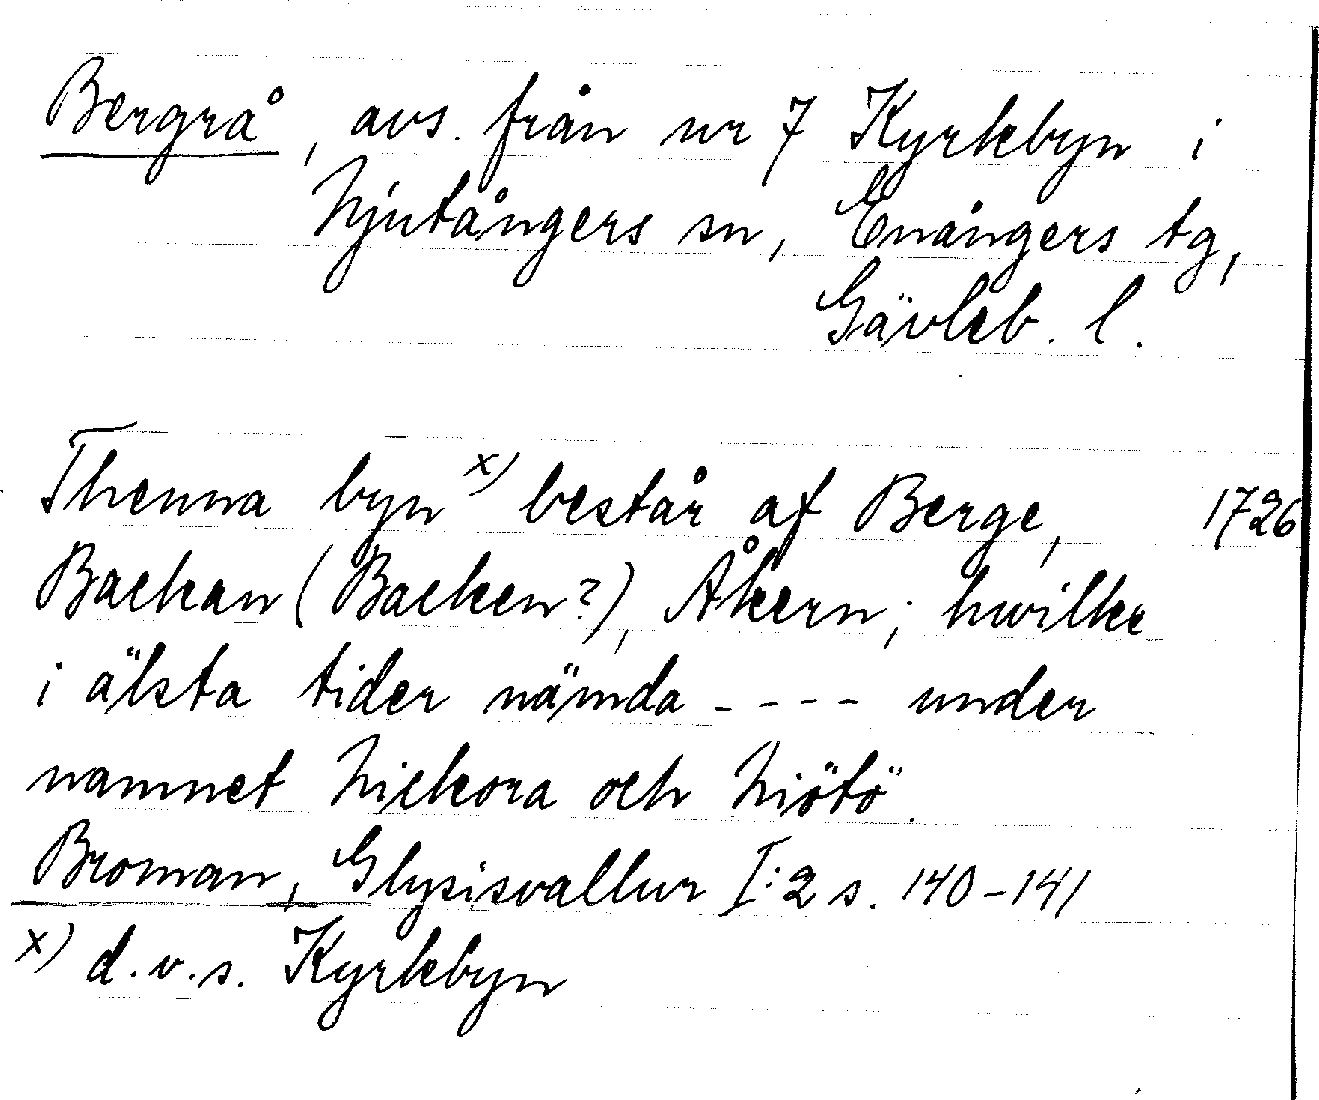 Bergrå, avs. från nr 7 Kyrkbyn i
Njutångers sn, Enångers tg,
Gävleb. l.
Thenna byn x) består af Berge, 1726
Backan (Backen?), Åkern; hwilke
i älsta tider nämda - - - - under
namnet Nickora och Niötö.
Broman, Glysisvallur I:2 s. 140-141
x) d.v.s. Kyrkbyn